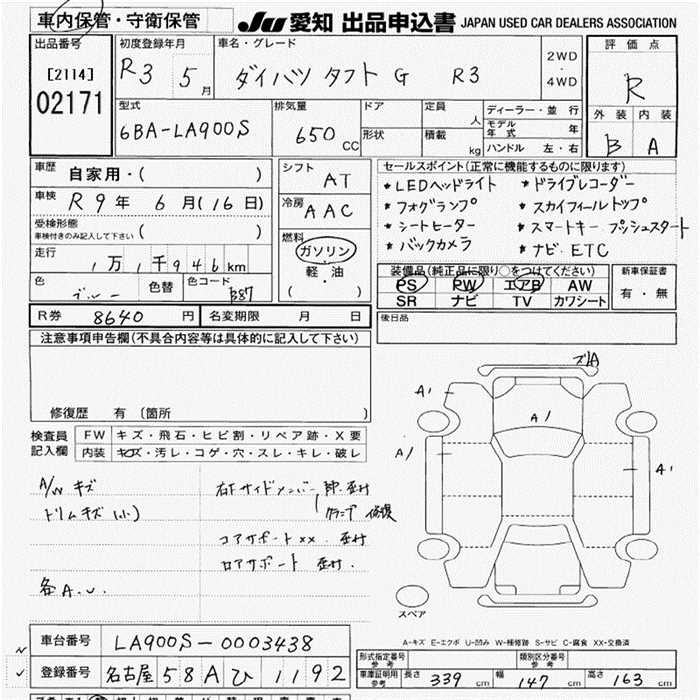 車内保管・守衛保管
JU 愛知 出品申込書 JAPAN USED CAR DEALERS ASSOCIATION
出品番号
[2114]
02171
初度登録年月
R3 5月
車名・グレード
ダイハツ タフト G R3
2WD
・
4WD
評価点
R
外装 内装
B A
型式
6BA-LA900S
排気量
650 CC
ドア
形状
定員 人
積載 kg
ディーラー・並行
モデル年式 年
ハンドル 左・右
車歴 自家用・( )
車検 R9年 6月(16日)
受検形態
車検付きのみ記入して下さい ( )
走行 1万1千946km
色 ブルー 色替 色コード B87
シフト AT
冷房 AAC
燃料
ガソリン
・
軽・油
( )
セールスポイント(正常に機能するものに限ります)
* LEDヘッドライト * ドライブレコーダー
* フォグランプ * スカイフィールトップ
* シートヒーター * スマートキー プッシュスタート
* バックカメラ * ナビ、ETC
装備品(純正品に限り○をつけてください)
PS PW エアB AW
SR ナビ TV カワシート
新車保証書
有・無
R券 8640 円 名変期限 月 日
後日品
注意事項申告欄(不具合内容等は具体的に記入して下さい)
修復歴 有 〔箇所 〕
検査員記入欄
FW キズ・飛石・ヒビ割・リペア跡・X要
内装 キズ・汚レ・コゲ・穴・スレ・キレ・破レ
A/W キズ
トリムキズ(小)
各A.U.
右F サイドメンバー 曲
修復
コアサポートXX.
ロアサポート
A1
A1
A1
A1
スペア
A-キズ E-エクボ U-凹み W-補修跡 S-サビ C-腐食 XX-交換済
車台番号 LA900S-0003438
登録番号 名古屋 58A ひ 1192
形式指定番号 参考
類別区分番号 参考
車庫証明用 参考
長さ 339 cm 幅 147 cm 高さ 163 cm